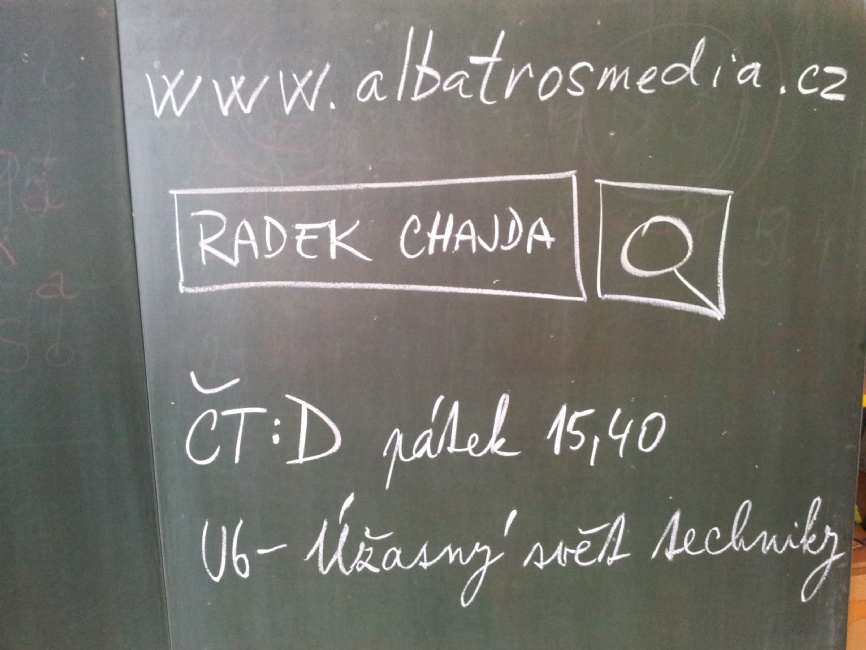 www.albatrosmedia.cz
RADEK CHAJDA
ČT:D pátek 15,40
U6 - Úžasný svět techniky